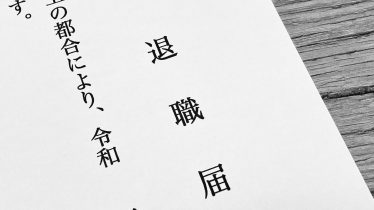 退職届
上の都合により、令和
す。